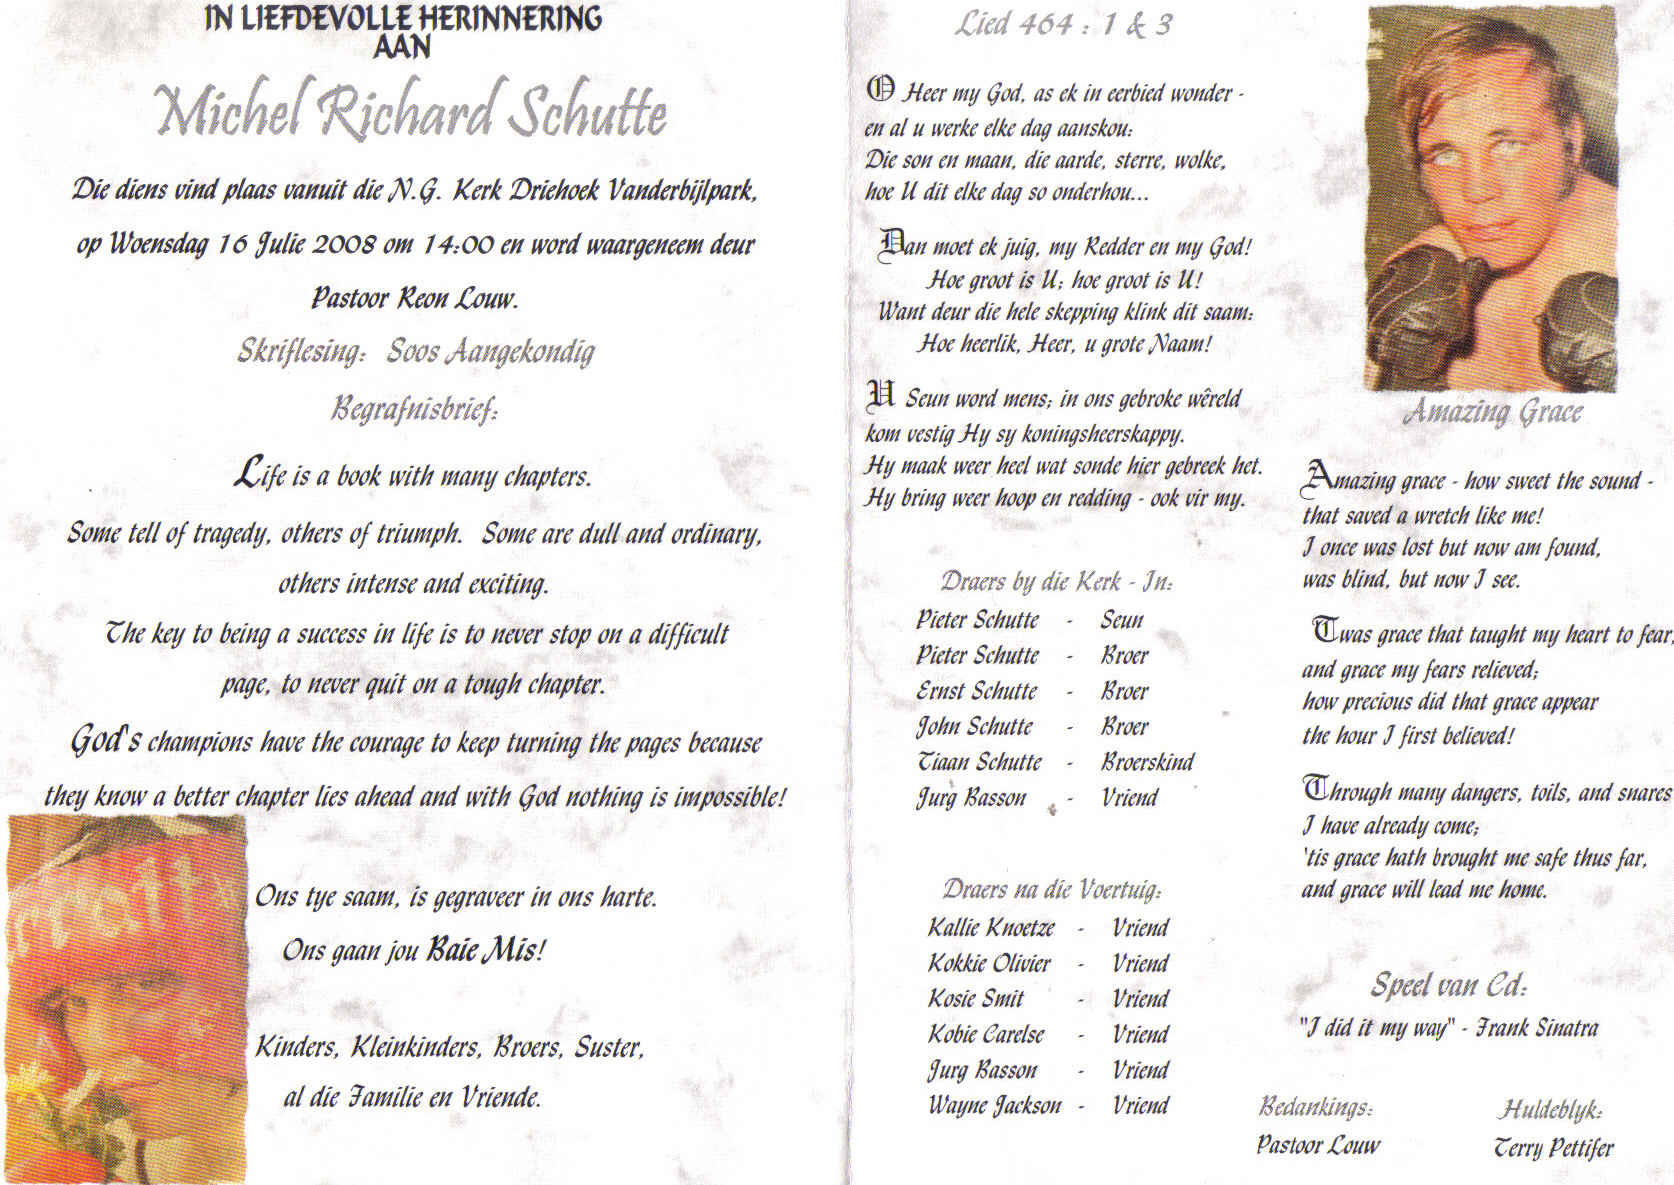 IN LIEFDEVOLLE HERINNERING
AAN
Michel Richard Schutte
Die diens vind plaas vanuit die N.G. Kerk Driehoek Vanderbijlpark,
op Woensdag 16 Julie 2008 om 14:00 en word waargeneem deur
Pastoor Reon Louw.
Skriflesing: Soos Aangekondig
Begrafnisbrief:
Life is a book with many chapters.
Some tell of tragedy, others of triumph. Some are dull and ordinary,
others intense and exciting.
The key to being a success in life is to never stop on a difficult
page, to never quit on a tough chapter.
God's champions have the courage to keep turning the pages because
they know a better chapter lies ahead and with God nothing is impossible!
Ons tye saam, is gegraveer in ons harte.
Ons gaan jou Baie Mis!
Kinders, Kleinkinders, Broers, Suster,
al die Familie en Vriende.
Lied 464 : 1 & 3
O Heer my God, as ek in eerbied wonder -
en al u werke elke dag aanskou:
Die son en maan, die aarde, sterre, wolke,
hoe U dit elke dag so onderhou...
Dan moet ek juig, my Redder en my God!
Hoe groot is U; hoe groot is U!
Want deur die hele skepping klink dit saam:
Hoe heerlik, Heer, u grote Naam!
U Seun word mens; in ons gebroke wêreld
kom vestig Hy sy koningsheerskappy.
Hy maak weer heel wat sonde hier gebreek het.
Hy bring weer hoop en redding - ook vir my.
Draers by die Kerk - In:
Pieter Schutte - Seun
Pieter Schutte - Broer
Ernst Schutte - Broer
John Schutte - Broer
Tiaan Schutte - Broerskind
Jurg Basson - Vriend
Draers na die Voertuig:
Kallie Knoetze - Vriend
Kokkie Olivier - Vriend
Kosie Smit - Vriend
Kobie Carelse - Vriend
Jurg Basson - Vriend
Wayne Jackson - Vriend
Amazing Grace
Amazing grace - how sweet the sound -
that saved a wretch like me!
I once was lost but now am found,
was blind, but now I see.
Twas grace that taught my heart to fear,
and grace my fears relieved;
how precious did that grace appear
the hour I first believed!
Through many dangers, toils, and snares
I have already come;
'tis grace hath brought me safe thus far,
and grace will lead me home.
Speel van Cd:
"I did it my way" - Frank Sinatra
Bedankings:
Pastoor Louw
Huldeblyk:
Terry Pettifer